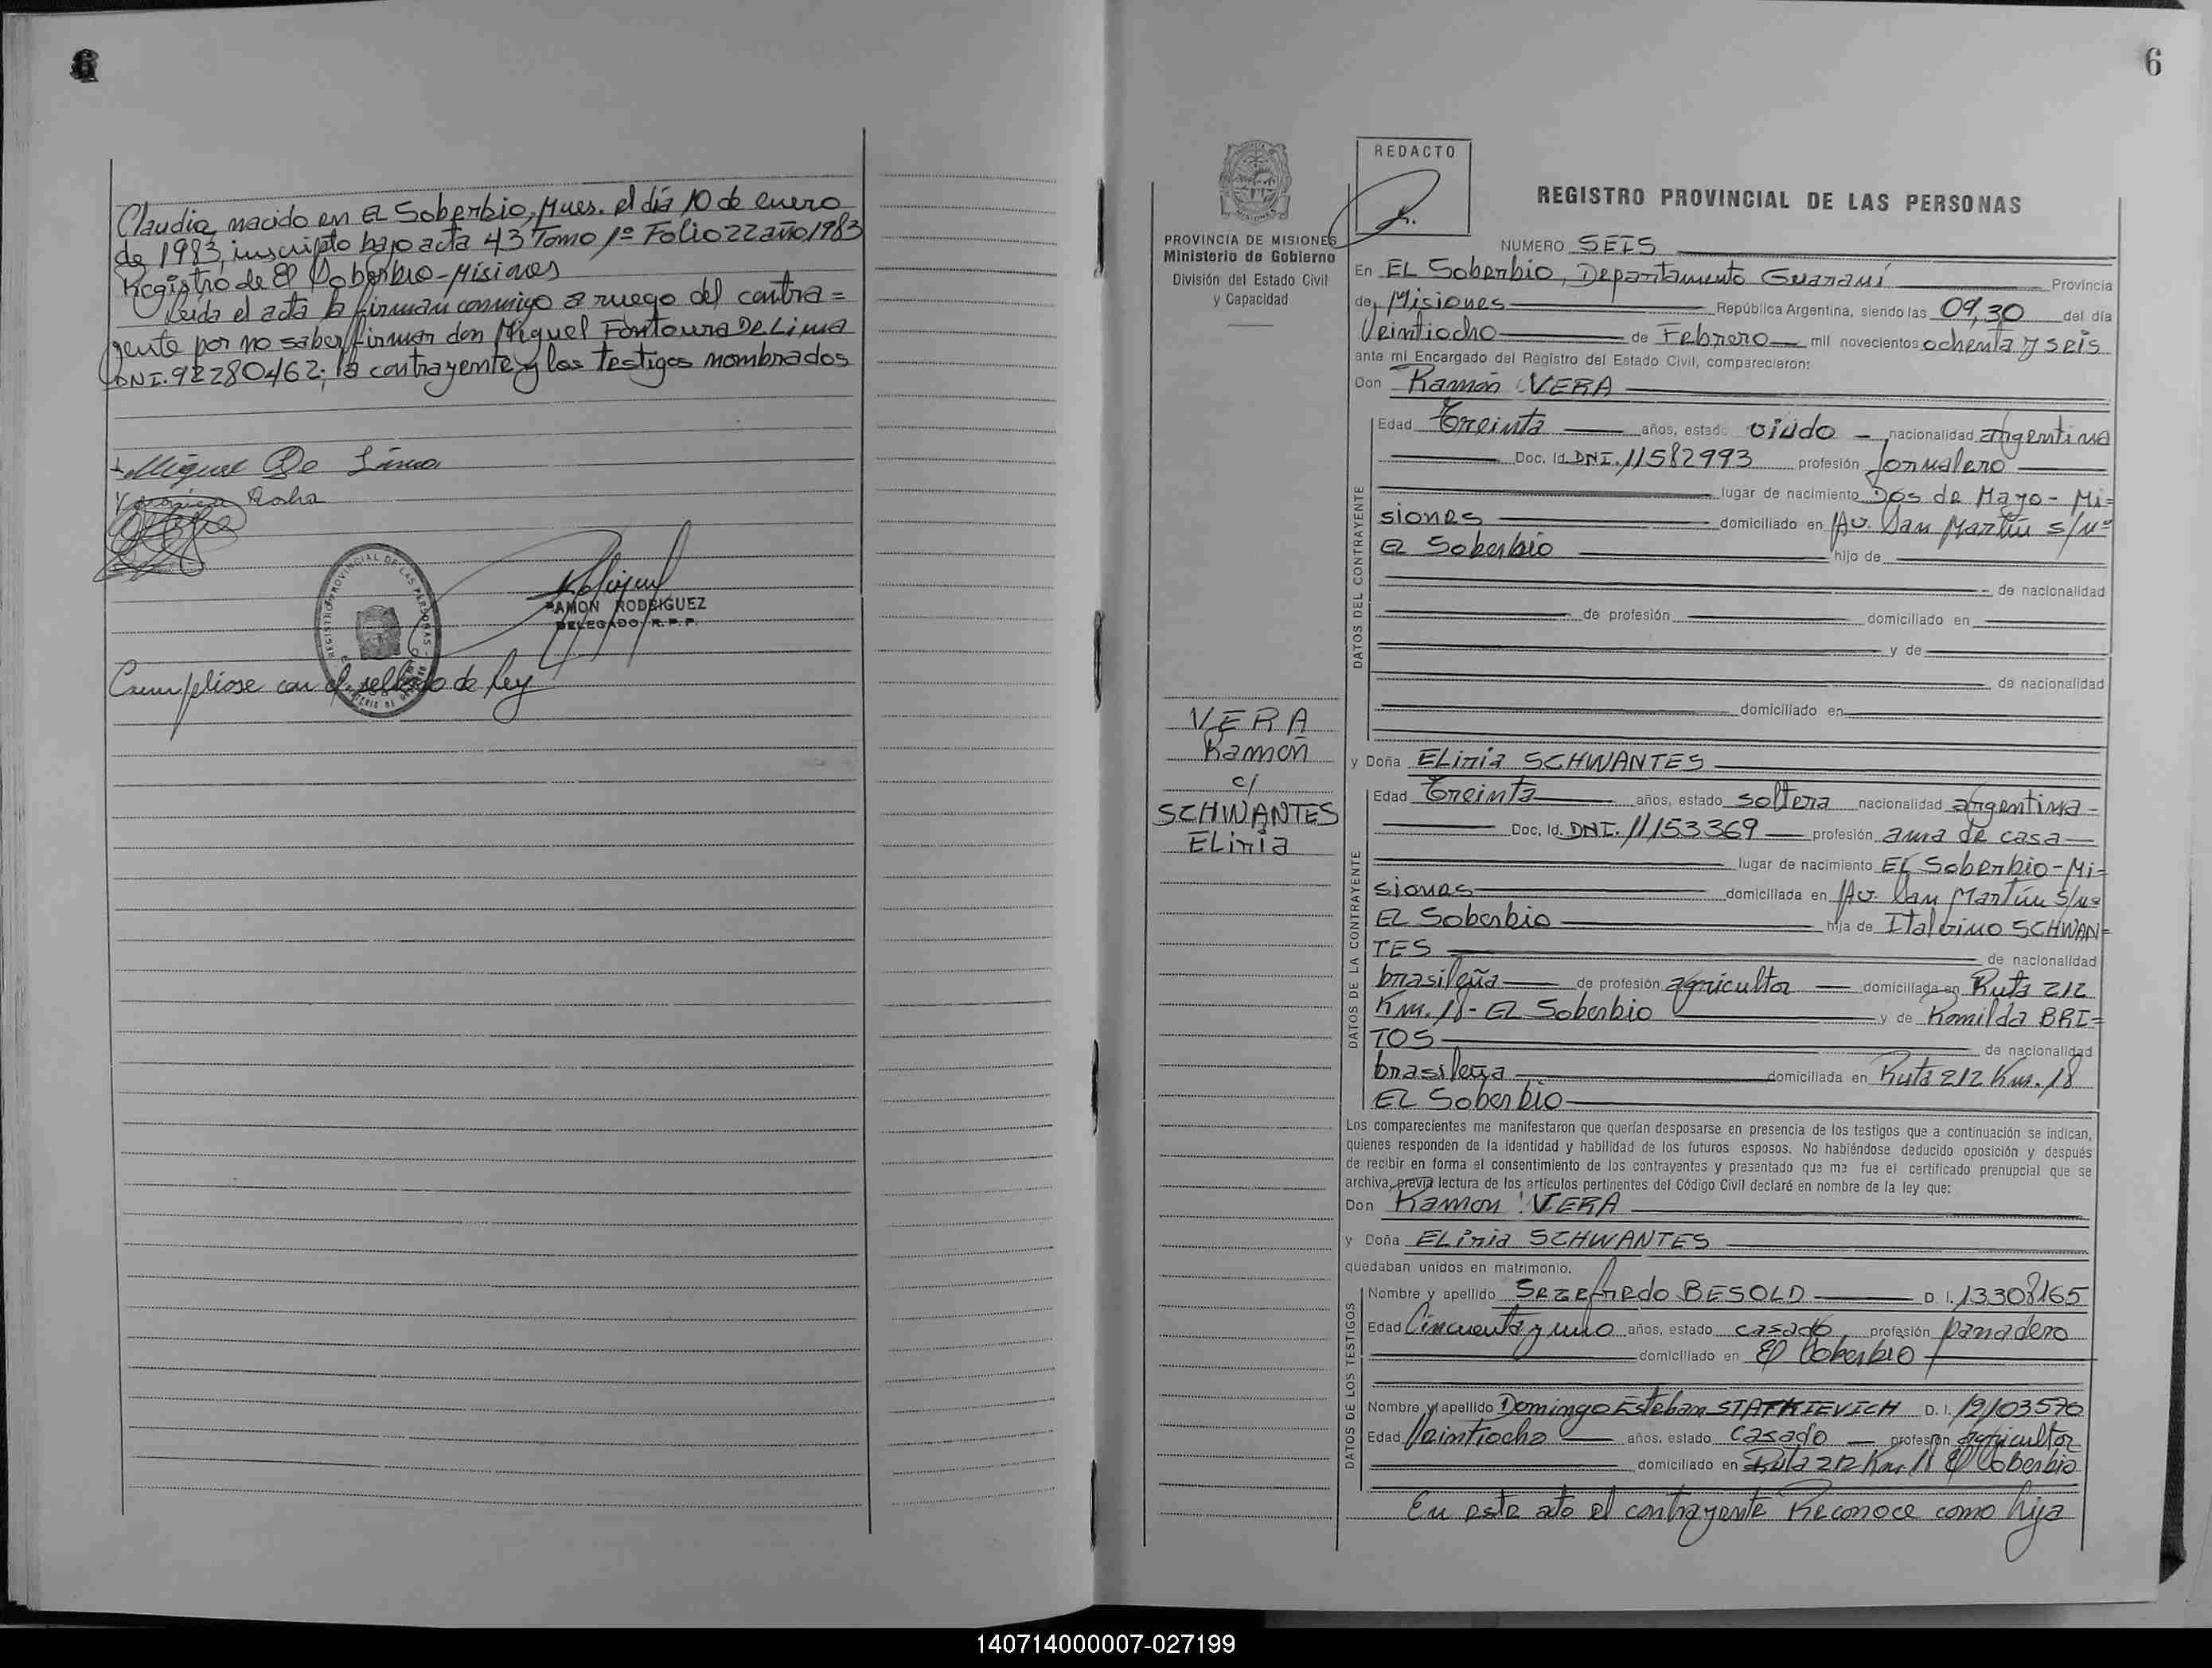 6
Claudia, nacido en El Soberbio, Mnes. el día 10 de enero
de 1983, inscripto bajo acta 43 Tomo 1º Folio 22 año 1983
Registro de El Soberbio-Misiones
Leida el acta la firman conmigo a ruego del contra=
yente por no saber firmar don Miguel Fontoura De Lima
DNI. 92280462; la contrayente y los testigos nombrados
Miguel De Lima
REGISTRO PROVINCIAL DE LAS PERSONAS
RAMON RODRIGUEZ
DELEGADO R.P.P.
Cumpliose con el sellado de ley
6
REDACTO
PROVINCIA DE MISIONES
Ministerio de Gobierno
División del Estado Civil
y Capacidad
VERA
Ramón
c/
SCHWANTES
Eliria
REGISTRO PROVINCIAL DE LAS PERSONAS
NUMERO SEIS
En El Soberbio, Departamento Guaraní Provincia
de Misiones República Argentina, siendo las 09,30 del día
Veintiocho de Febrero mil novecientos ochenta y seis
ante mí Encargado del Registro del Estado Civil, comparecieron:
Don Ramón VERA
DATOS DEL CONTRAYENTE
Edad Treinta años, estado viudo nacionalidad argentina
Doc. Id. DNI. 11582993 profesión Jornalero
lugar de nacimiento Dos de Mayo - Mi=
siones domiciliado en Av. San Martín s/nº
El Soberbio hijo de
de nacionalidad
de profesión domiciliado en
y de
de nacionalidad
domiciliado en
y Doña Eliria SCHWANTES
DATOS DE LA CONTRAYENTE
Edad Treinta años, estado soltera nacionalidad argentina
Doc. Id. DNI. 11153369 profesión ama de casa
lugar de nacimiento El Soberbio-Mi=
siones domiciliada en Av. San Martín s/nº
El Soberbio hija de Italvino SCHWAN=
TES de nacionalidad
brasileña de profesión agricultor domiciliada en Ruta 212
Km. 18 - El Soberbio y de Romilda BRI=
TOS de nacionalidad
brasileña domiciliada en Ruta 212 Km. 18
El Soberbio
Los comparecientes me manifestaron que querían desposarse en presencia de los testigos que a continuación se indican,
quienes responden de la identidad y habilidad de los futuros esposos. No habiéndose deducido oposición y después
de recibir en forma el consentimiento de los contrayentes y presentado que me fue el certificado prenupcial que se
archiva, previa lectura de los artículos pertinentes del Código Civil declaré en nombre de la ley que:
Don Ramon VERA
y Doña Eliria SCHWANTES
quedaban unidos en matrimonio.
DATOS DE LOS TESTIGOS
Nombre y apellido Sezefredo BESOLD D. I. 13308165
Edad Cincuenta y uno años, estado casado profesión panadero
domiciliado en El Soberbio
Nombre y apellido Domingo Esteban STATKIEVICH D. I. 12103570
Edad Veintiocho años, estado Casado profesión agricultor
domiciliado en Ruta 212 Km. 18 El Soberbio
En este acto el contrayente Reconoce como hija
140714000007-027199